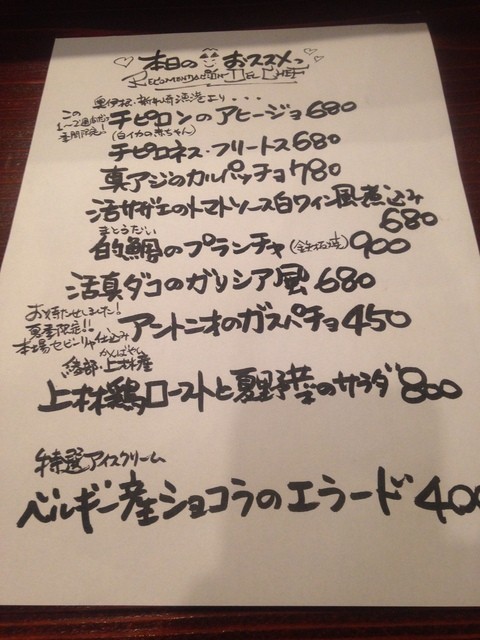 本日の おススメっ
RECOMENDACIÓN DEL CHEF
奥伊根・新井崎漁港より・・・
この
季節限定!
チピロンのアヒージョ680
(白イカの赤ちゃん)
チピロネス・フリートス680
真アジのカルパッチョ780
活サザエのトマトソース白ワイン風煮込み
680
まとうだい
的鯛のプランチャ(鉄板焼)900
活真ダコのガリシア風680
お待たせしました!
夏季限定!!
本場セビーリャ仕込み
アントニオのガスパチョ450
綾部・上林産
かんばやし
上林鶏ローストと夏野菜のサラダ800
特選アイスクリーム
ベルギー産ショコラのエラード400